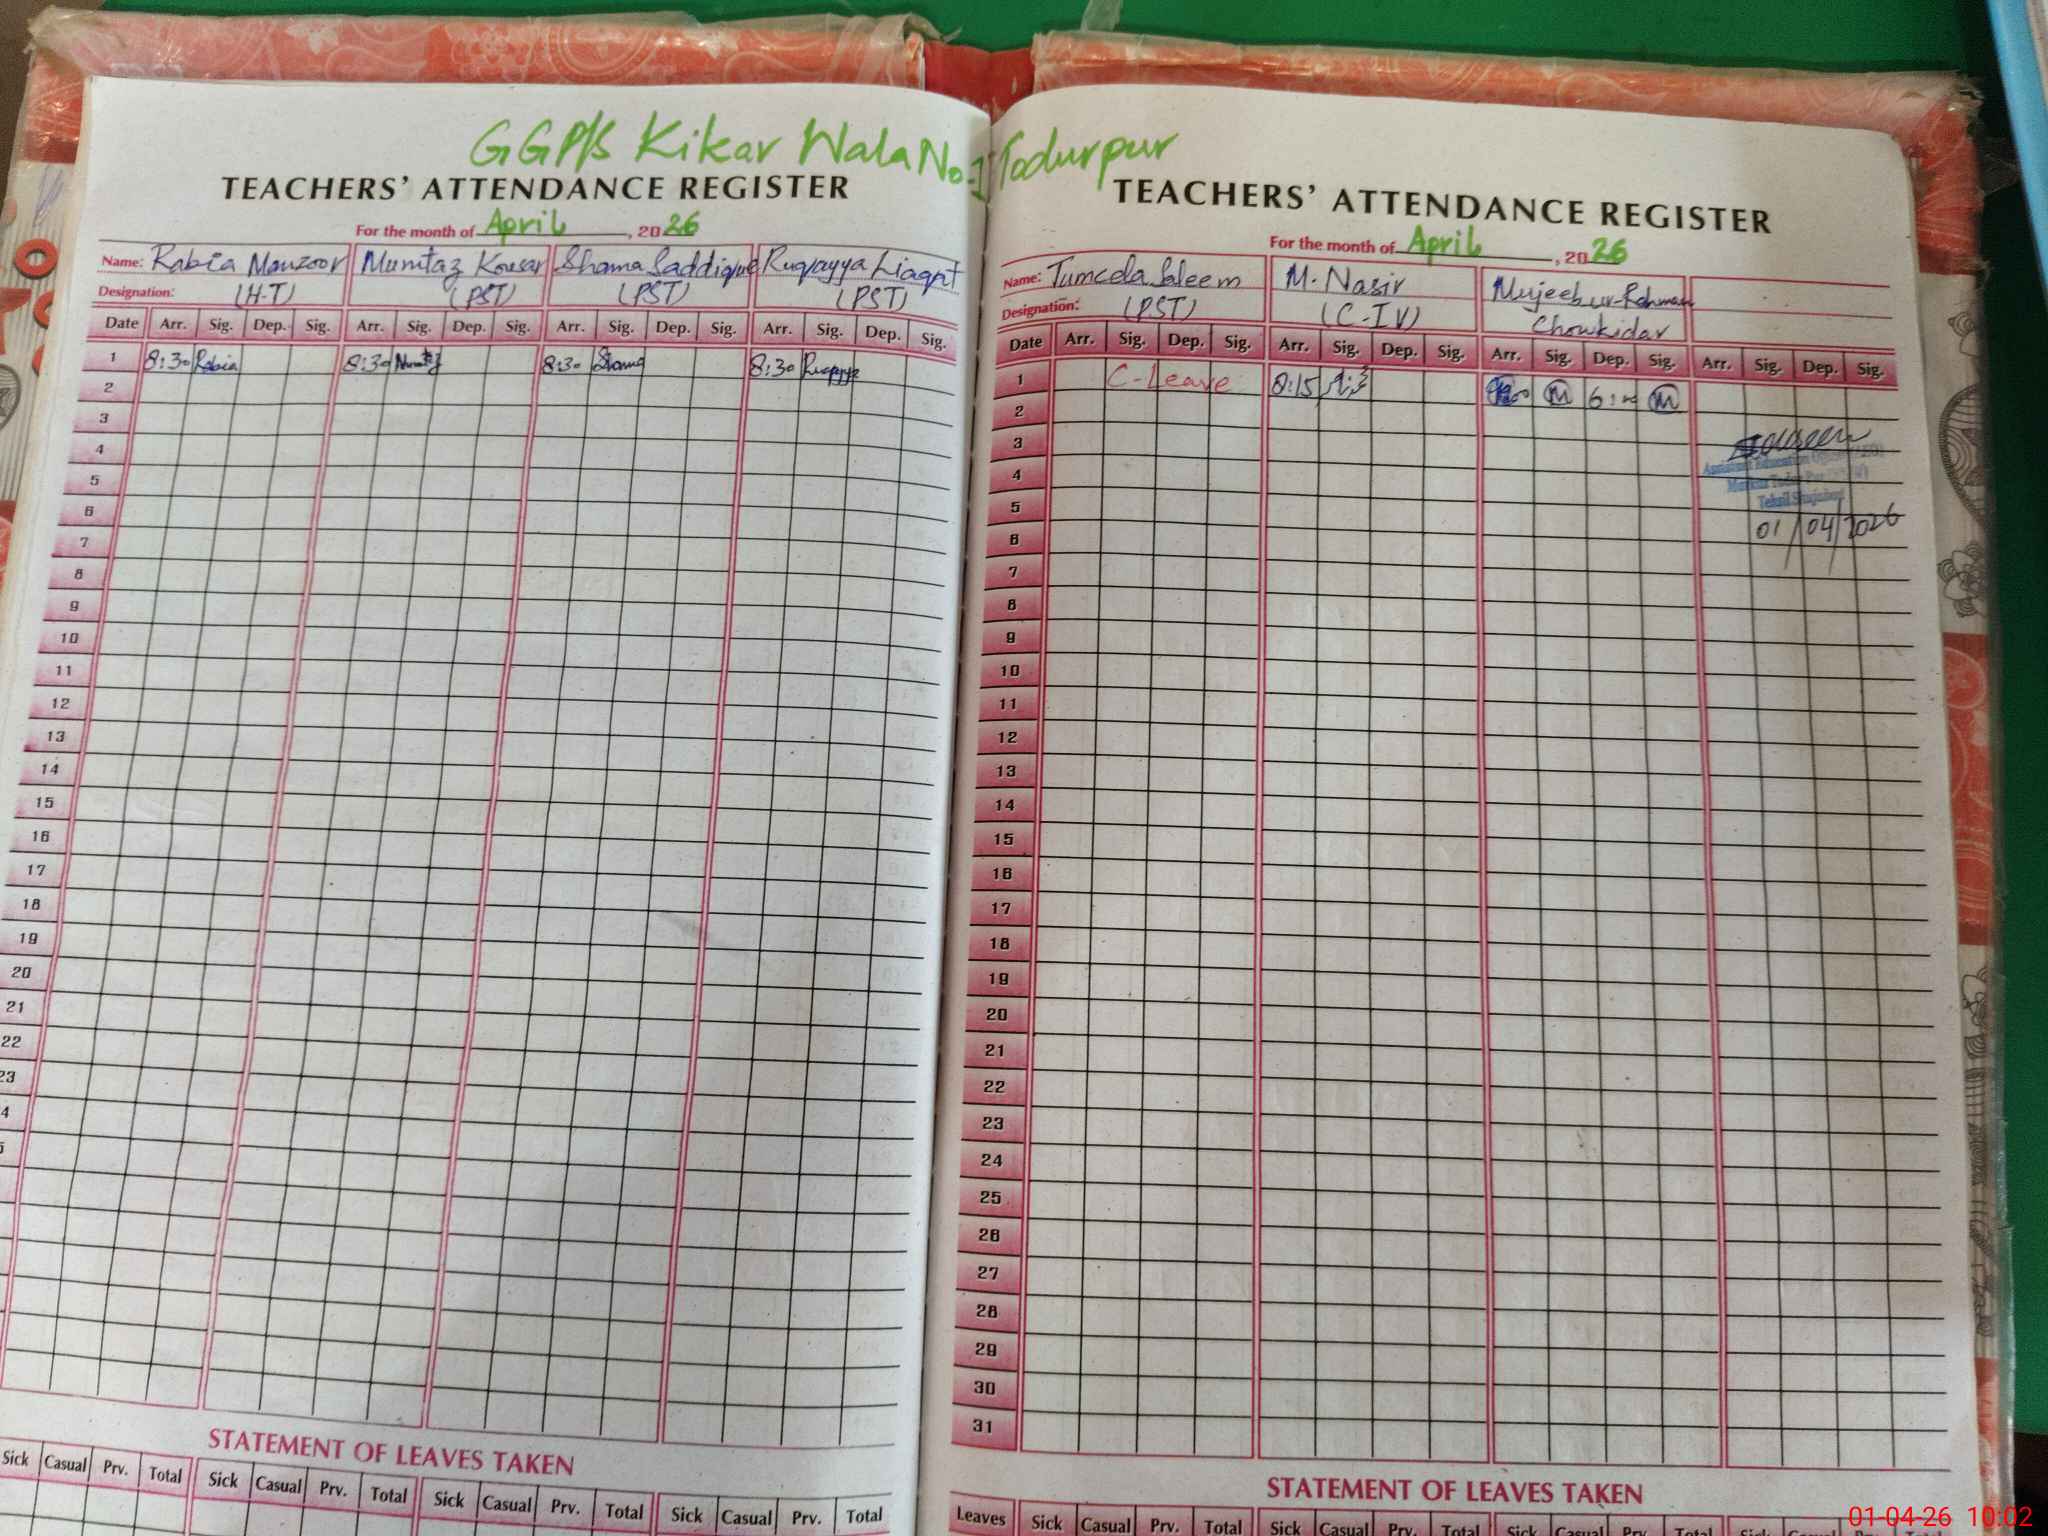 GGP/S Kikar Wala No-1 Todurpur
TEACHERS' ATTENDANCE REGISTER
For the month of April, 2026
Name: Rabia Manzoor Mumtaz Kousar Shama Saddique Ruqayya Liaqat
Designation: (H-T) (PST) (PST) (PST)
Date Arr. Sig. Dep. Sig. Arr. Sig. Dep. Sig. Arr. Sig. Dep. Sig. Arr. Sig. Dep. Sig.
1 8:30 Rabia 8:30 Mumtaz 8:30 Shama 8:30 Ruqayya
2
3
4
5
6
7
8
9
10
11
12
13
14
15
16
17
18
19
20
21
22
23
4
5
STATEMENT OF LEAVES TAKEN
Sick Casual Prv. Total Sick Casual Prv. Total Sick Casual Prv. Total Sick Casual Prv. Total
TEACHERS' ATTENDANCE REGISTER
For the month of April, 2026
Name: Tumeela Saleem M. Nasir Mujeeb ur-Rehman
Designation: (PST) (C-IV) Chowkidar
Date Arr. Sig. Dep. Sig. Arr. Sig. Dep. Sig. Arr. Sig. Dep. Sig. Arr. Sig. Dep. Sig.
1 C-Leave 8:15 M M
2
3
4 Assistant Education
5 Tehsil Shujabad
6 01/04/2026
7
8
9
10
11
12
13
14
15
16
17
18
19
20
21
22
23
24
25
26
27
28
29
30
31
STATEMENT OF LEAVES TAKEN
Leaves Sick Casual Prv. Total Sick Casual Prv. Total Sick Casual Prv. Total Sick Casual Prv. Total
01-04-26 10:02